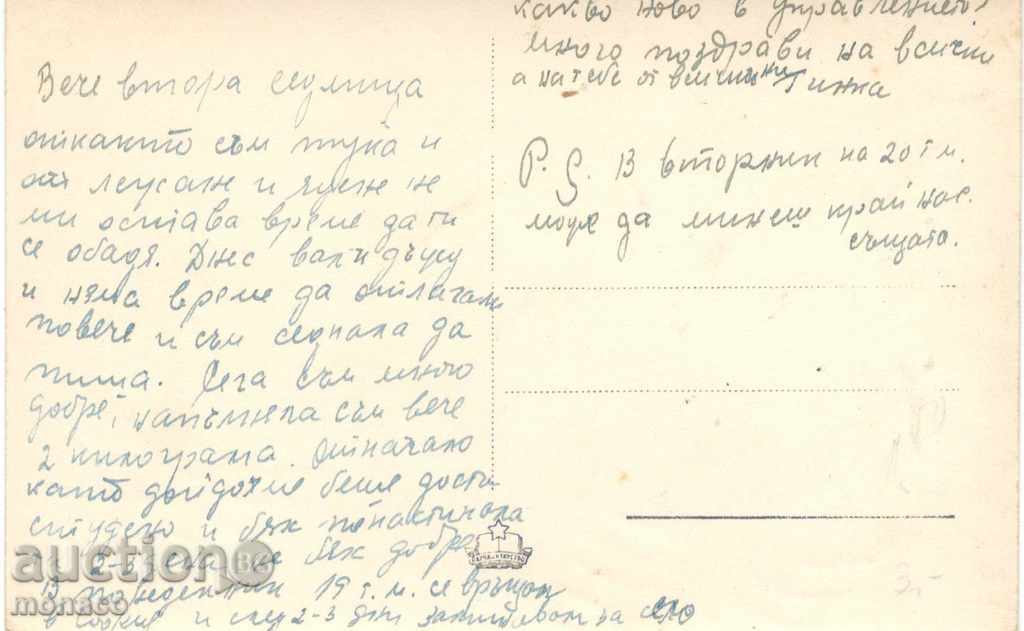 Вече втора седмица
откакто съм тука и
от лежане и ядене не
ми остава време да ти
се обадя. Днес вали дъжд
и няма време да отлагам
повече и съм седнала да
пиша. Сега съм много
добре, напълняла съм вече
2 килограма. Отначало
като дойдохме беше доста
студено и бях понастинала
2-3 дена не бях добре
В понеделник 19 т.м. се връщам
в София и след 2-3 дни заминавам за село
какво ново в управлението?
много поздрави на всички
а на тебе от Гинка
P.S. В вторник на 20 т.м.
може да минеш край нас.
същата.
auction BG
monaco